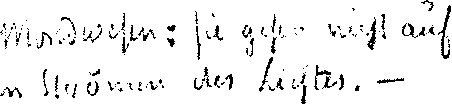 Mordwesen: sie gehen nicht auf
n Strömen des Lichtes. —